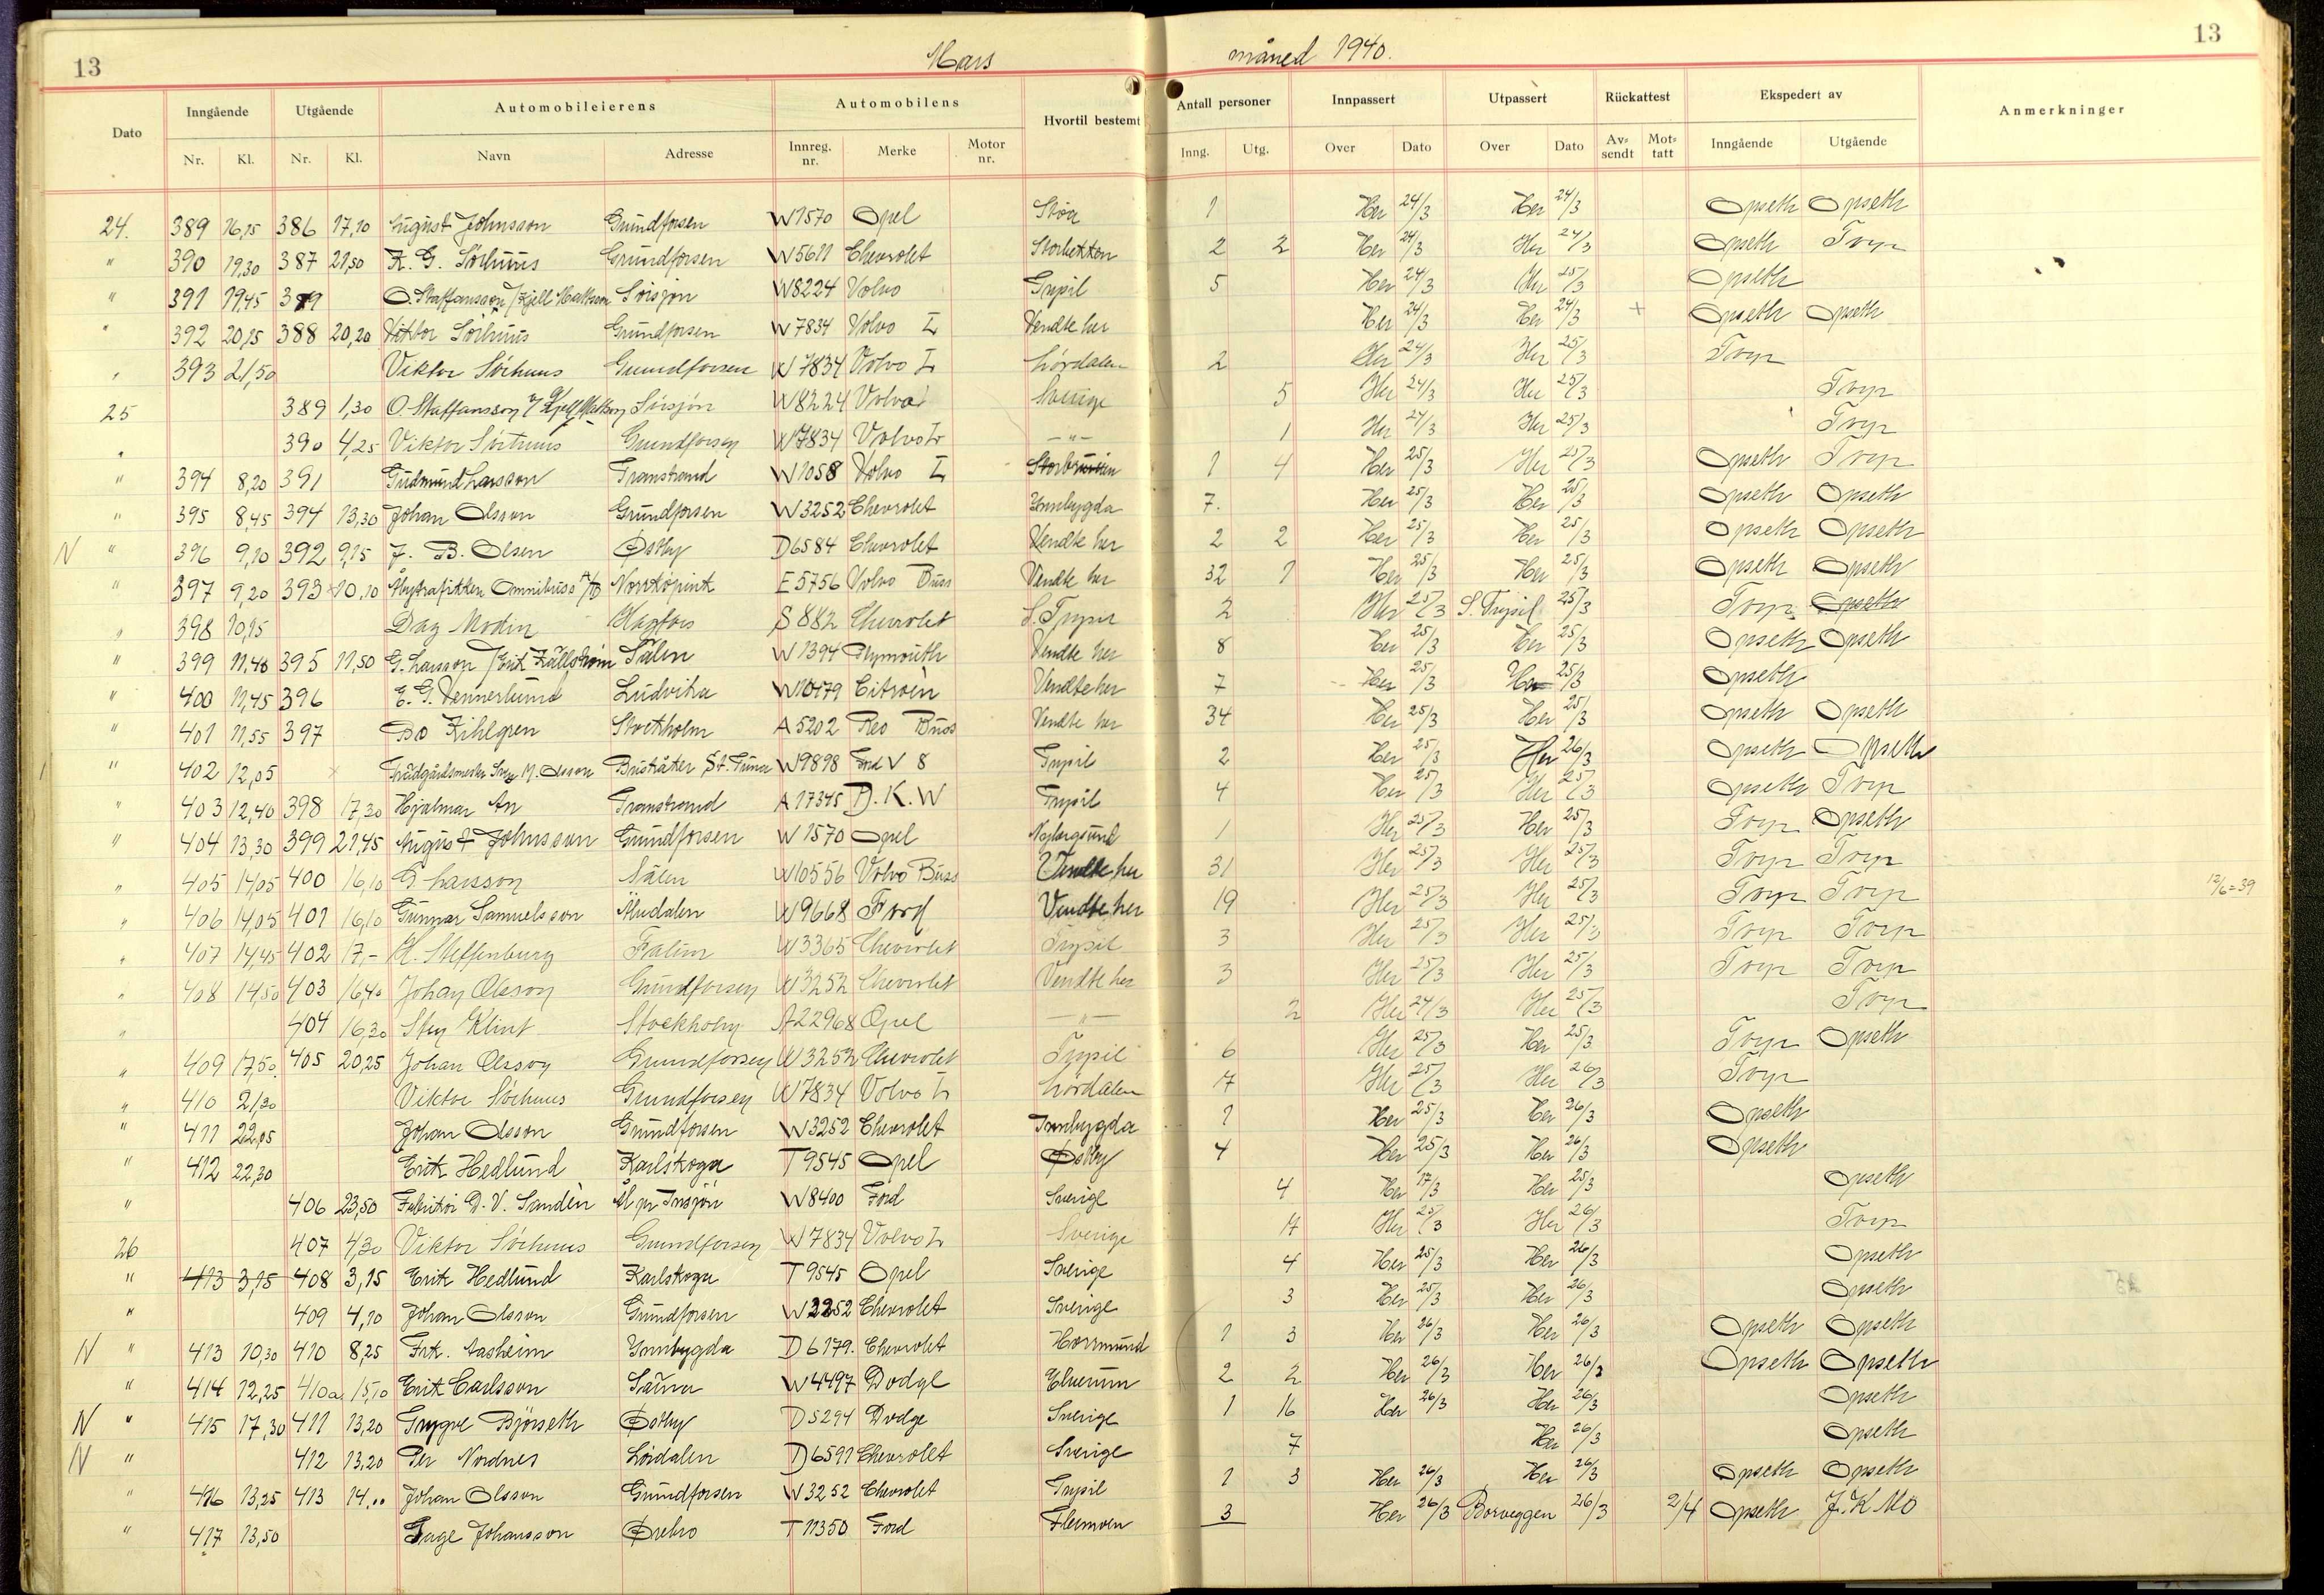 13 Mars måned 1940. 13
Dato Inngående Utgående Automobileierens Automobilens Hvortil bestemt Antall personer Innpassert Utpassert Rückattest Ekspedert av Anmerkninger
Nr. Kl. Nr. Kl. Navn Adresse Innreg. nr. Merke Motor nr. Inng. Utg. Over Dato Over Dato Av-sendt Mot-tatt Inngående Utgående
24. 389 16,15 386 17,10 August Johnsson Grundforsen W1570 Opel Støa 1 Her 24/3 Her 24/3 Opseth Opseth
" 390 19,30 387 21,50 K. G. Sörhuus Grundforsen W5611 Chevrolet Storbekken 2 2 Her 24/3 Her 24/3 Opseth Torp
" 391 19,45 389 O. Staffansson / Kjell Mattson Sörsjön W8224 Volvo Trysil 5 Her 24/3 Her 25/3 Opseth
" 392 20,15 388 20,20 Viktor Sörhuus Grundforsen W7834 Volvo L Vendte her Her 24/3 Her 24/3 + Opseth Opseth
" 393 21,50 Viktor Sörhuus Grundforsen W7834 Volvo L Lördalen 2 Her 24/3 Her 25/3 Torp
25 389 1,30 O. Staffansson / Kjell Mattson Sörsjön W8224 Volvo Sverige 5 Her 24/3 Her 25/3 Torp
" 390 4,25 Viktor Sörhuus Grundforsen W7834 Volvo L -"- 1 Her 24/3 Her 25/3 Torp
" 394 8,20 391 Gudmund Larsson Transtrand W1058 Volvo L 1 4 Her 25/3 Her 25/3 Opseth Torp
" 395 8,45 394 13,30 Johan Olsson Grundforsen W3252 Chevrolet Innbygda 7. Her 25/3 Her 25/3 Opseth Opseth
N " 396 9,10 392 9,15 J. B. Olsen Østby D6584 Chevrolet Vendte her 2 2 Her 25/3 Her 25/3 Opseth Opseth
" 397 9,20 393 10,10 Åbytrafikken Omnibuss A/B Norrköpink E5756 Volvo Buss Vendte her 32 1 Her 25/3 Her 25/3 Opseth Opseth
" 398 10,15 Dag Modin Hagfors S882 Chevrolet S. Trysil 2 Her 25/3 S. Trysil 25/3 Torp Opseth
" 399 11,40 395 11,50 G. Larsson / Erik Källström Sälen W1394 Plymouth Vendte her 8 Her 25/3 Her 25/3 Opseth Opseth
" 400 11,45 396 E. G. Vennerlund Ludvika W10179 Citroèn Vendte her 7 Her 25/3 Her 25/3 Opseth
" 401 11,55 397 Bo Kihlgren Stockholm A5202 Reo Buss Vendte her 34 Her 25/3 Her 25/3 Opseth Opseth
" 402 12,05 Trädgårdsmester M. Olsson St. Tuna W9898 Ford V 8 Trysil 2 Her 25/3 Her 26/3 Opseth Opseth
" 403 12,40 398 17,30 Hjalmar An Transtrand A17345 D.K.W Trysil 4 Her 25/3 Her 25/3 Opseth Torp
" 404 13,30 399 21,45 August Johnsson Grundforsen W1570 Opel Nybergsund 1 Her 25/3 Her 25/3 Torp Opseth
" 405 14,05 400 16,10 G Larsson Sälen W10556 Volvo Buss Vendte her 31 Her 25/3 Her 25/3 Torp Torp
" 406 14,05 401 16,10 Gunnar Samuelsson Älvdalen W9668 Ford Vendte her 19 Her 25/3 Her 25/3 Torp Torp 12/6=39
" 407 14,45 402 17,- H. Steffenburg Falun W3365 Chevrolet Trysil 3 Her 25/3 Her 25/3 Torp Torp
" 408 14,50 403 16,40 Johan Olsson Grundforsen W3252 Chevrolet Vendte her 3 Her 25/3 Her 25/3 Torp Torp
" 404 16,30 Sten Klint Stockholm A22968 Opel -"- 2 Her 24/3 Her 25/3 Torp
" 409 17,50 405 20,25 Johan Olsson Grundforsen W3252 Chevrolet Trysil 6 Her 25/3 Her 25/3 Torp Opseth
" 410 21,30 Viktor Sörhuus Grundforsen W7834 Volvo L Lördalen 17 Her 25/3 Her 26/3 Torp
" 411 22,05 Johan Olsson Grundforsen W3252 Chevrolet Innbygda 1 Her 25/3 Her 26/3 Opseth
" 412 22,30 Erik Hedlund Karlskoga T9545 Opel Østby 4 Her 25/3 Her 26/3 Opseth
" 406 23,50 Fabrikör D. V. Sandèn Ål pr Insjön W8400 Ford Sverige 4 Her 17/3 Her 25/3 Opseth
26 407 4,30 Viktor Sörhuus Grundforsen W7834 Volvo L Sverige 17 Her 25/3 Her 26/3 Torp
" 413 3,15 408 3,15 Erik Hedlund Karlskoga T9545 Opel Sverige 4 Her 25/3 Her 26/3 Opseth
" 409 4,10 Johan Olsson Grundforsen W3252 Chevrolet Sverige 3 Her 25/3 Her 26/3 Opseth
N " 413 10,30 410 8,25 Frk. Aasheim Innbygda D6179. Chevrolet Horrmund 1 3 Her 26/3 Her 26/3 Opseth Opseth
" 414 12,25 410a 15,10 Erik Carlsson Särna W4497 Dodge Elverum 2 2 Her 26/3 Her 26/3 Opseth Opseth
N " 415 17,30 411 13,20 Trygve Björseth Østby D5294 Dodge Sverige 1 16 Her 26/3 Her 26/3 Opseth
N " 412 13,20 Per Nordnes Lördalen D6591 Chevrolet Sverige 7 Her 26/3 Opseth
" 416 13,25 413 14.. Johan Olsson Grundforsen W3252 Chevrolet Trysil 1 3 Her 26/3 Her 26/3 Opseth Opseth
" 417 13,50 Tage Johansson Ørebro T11350 Ford Flermoen 3 Her 26/3 Borveggen 26/3 2/4 Opseth J. K. Mo